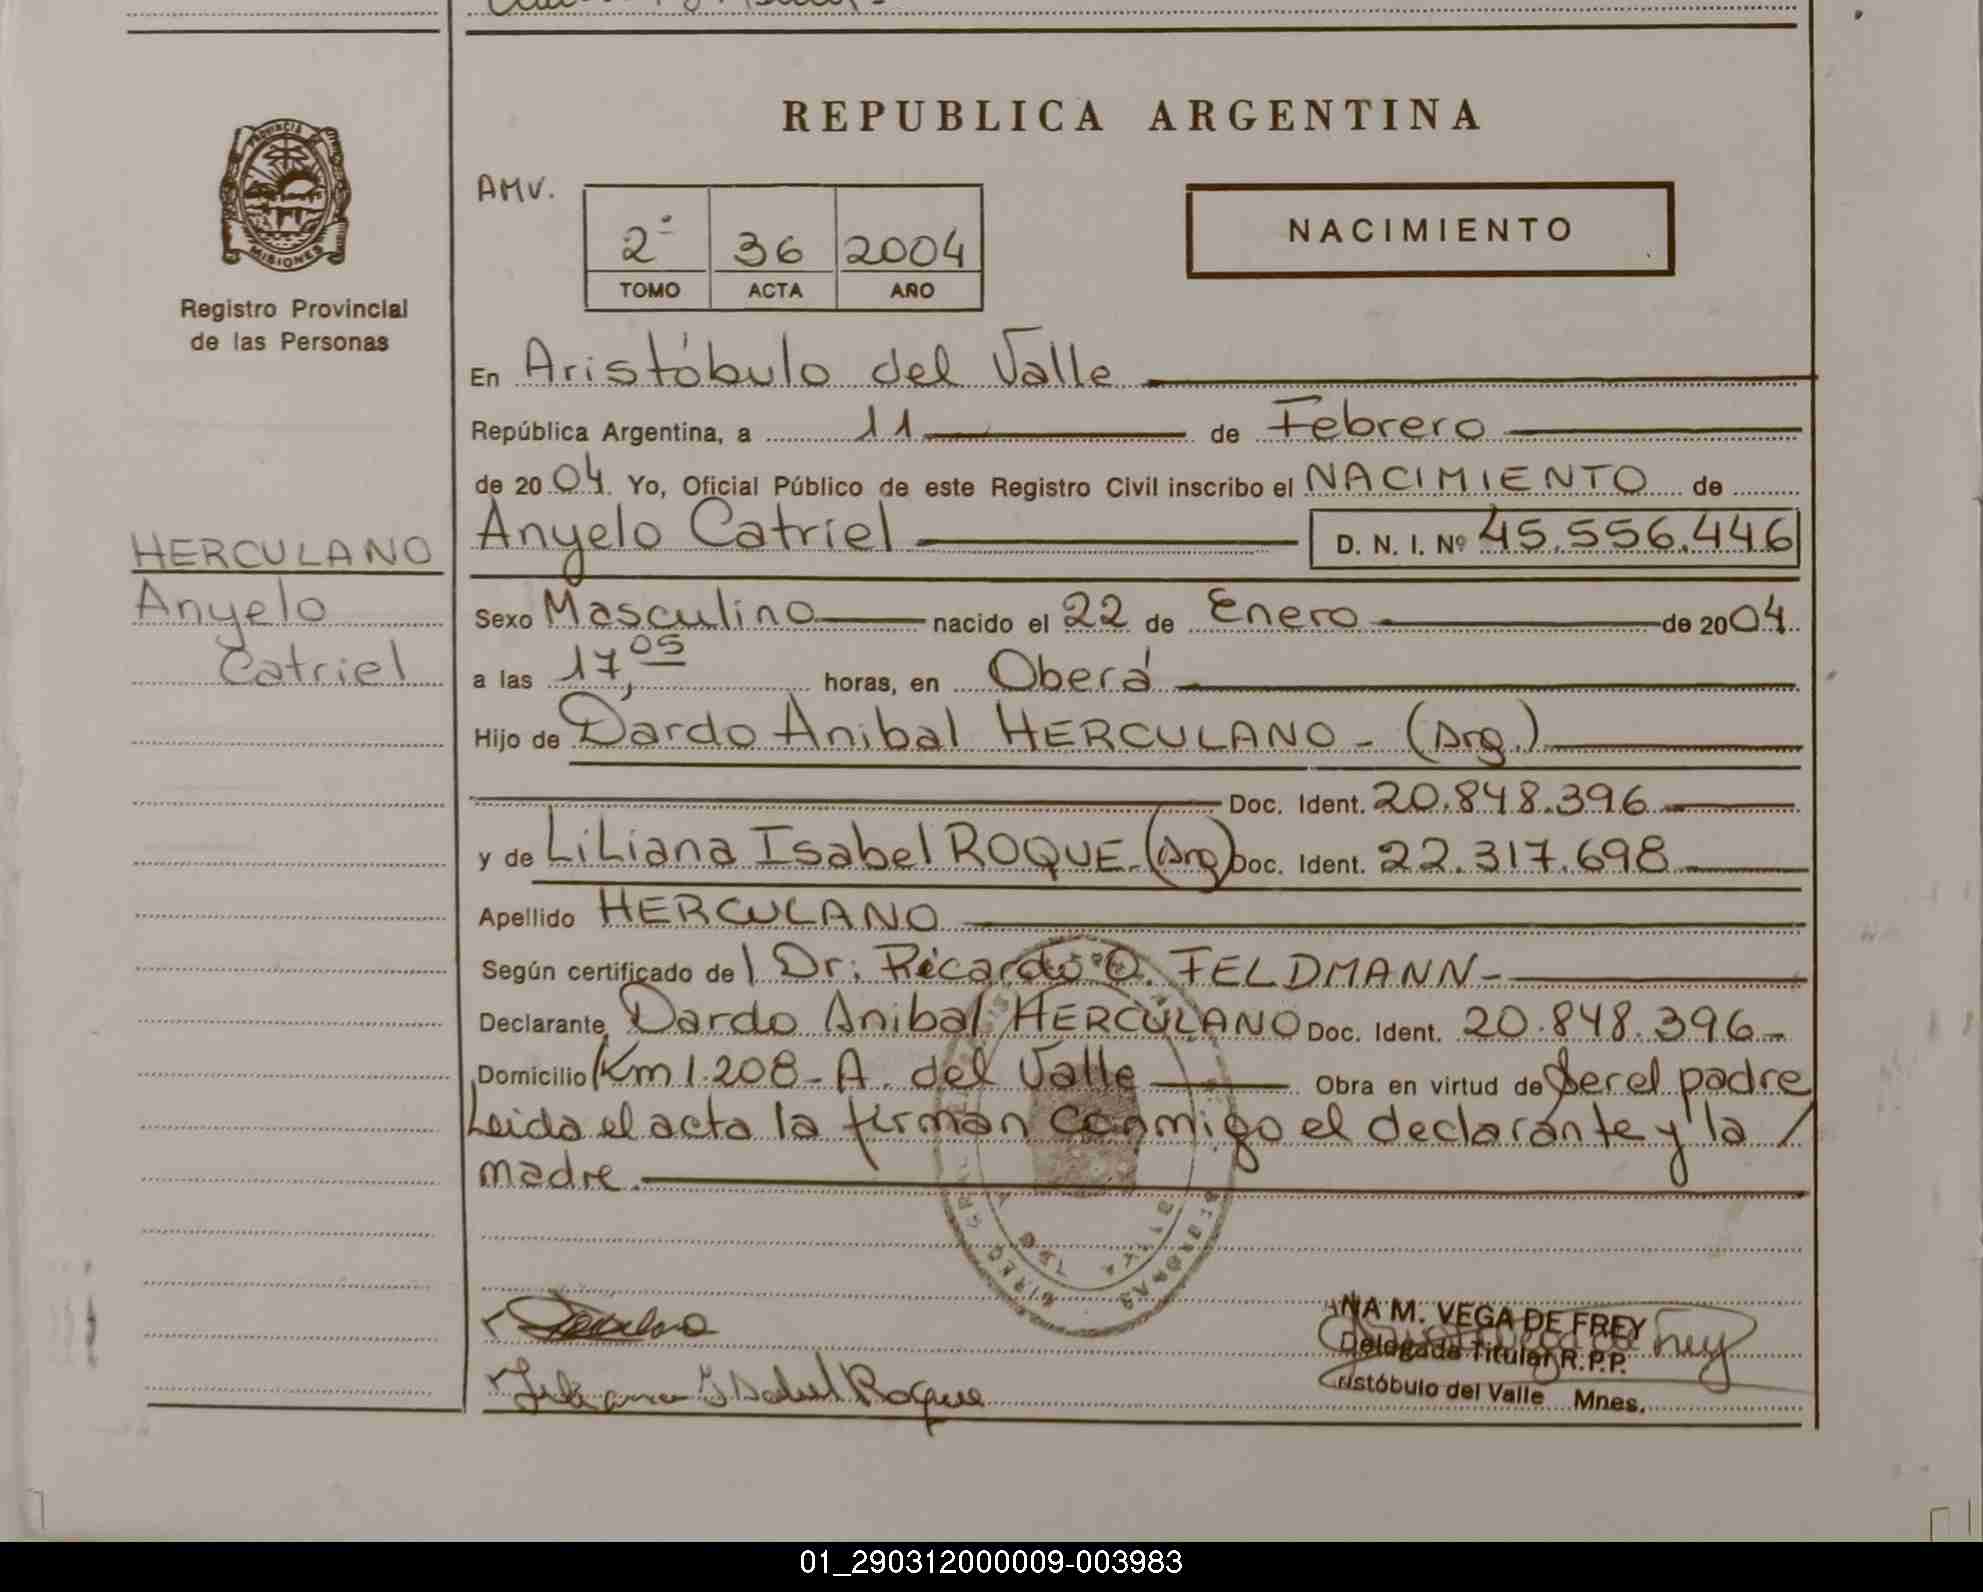 REPUBLICA ARGENTINA
PROVINCIA
MISIONES
Registro Provincial
de las Personas
AMV.
2º 36 2004
TOMO ACTA AÑO
NACIMIENTO
En Aristóbulo del Valle
República Argentina, a 11 de Febrero
de 2004. Yo, Oficial Público de este Registro Civil inscribo el NACIMIENTO de
Anyelo Catriel D. N. I. Nº 45.556.446
HERCULANO
Anyelo
Catriel
Sexo Masculino nacido el 22 de Enero de 2004
a las 17,05 horas, en Oberá
Hijo de Dardo Anibal HERCULANO - (Arg.)
Doc. Ident. 20.848.396
y de Liliana Isabel ROQUE - (Arg) Doc. Ident. 22.317.698
Apellido HERCULANO
Según certificado de l Dr. Ricardo O. FELDMANN-
Declarante Dardo Anibal HERCULANO Doc. Ident. 20.848.396-
Domicilio Km 1.208 - A. del Valle Obra en virtud de ser el padre
Leida el acta la firman conmigo el declarante y la /
madre.
Liliana Isabel Roque
ANA M. VEGA DE FREY
Delegada Titular R.P.P.
Aristóbulo del Valle Mnes.
01_290312000009-003983